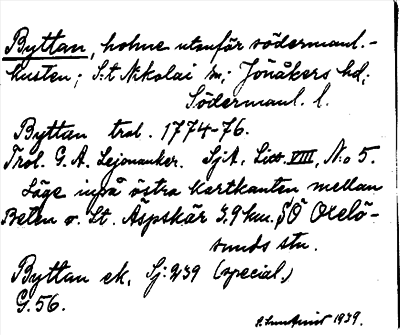 Byttan, holme utanför södermanl.-
kusten; S:t Nikolai sn; Jönåkers hd;
Södermanl. l.
Byttan trol. 1774-76.
Trol. G. A. Lejonanker. SjA, Litt. VIII, No 5.
Läge inpå östra kartkanten mellan
Beten o. St. Äspskär 3,9 km. SÖ Oxelö-
sunds stn.
Byttan ek. Sj: 239 (special.)
G. 56.
1939.